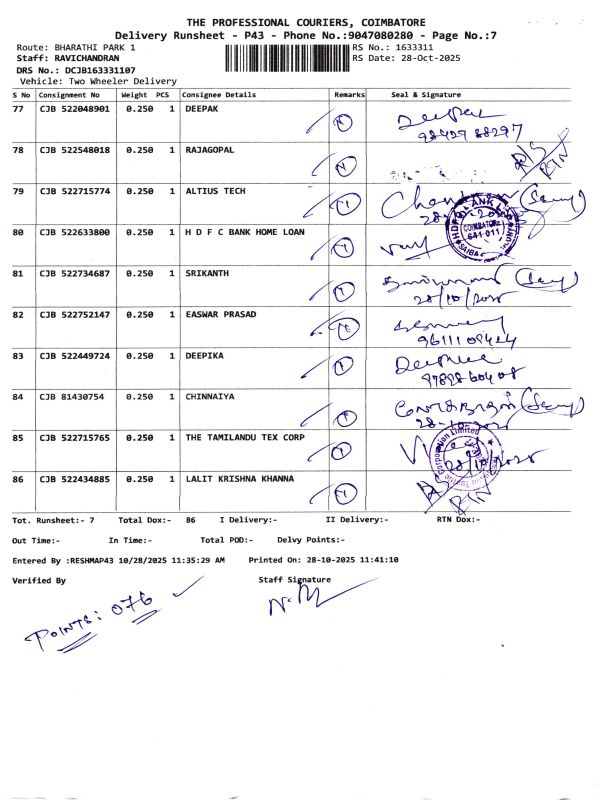 THE PROFESSIONAL COURIERS, COIMBATORE
Delivery Runsheet - P43 - Phone No.:9047080280 - Page No.:7
Route: BHARATHI PARK 1 RS No.: 1633311
Staff: RAVICHANDRAN RS Date: 28-Oct-2025
DRS No.: DCJB163331107
Vehicle: Two Wheeler Delivery
S No Consignment No Weight PCS Consignee Details Remarks Seal & Signature
77 CJB 522048901 0.250 1 DEEPAK Deepak
98429 88297
78 CJB 522548018 0.250 1 RAJAGOPAL RTN
79 CJB 522715774 0.250 1 ALTIUS TECH
80 CJB 522633800 0.250 1 H D F C BANK HOME LOAN
COIMBATORE
641 011
81 CJB 522734687 0.250 1 SRIKANTH
28/10/2025
82 CJB 522752147 0.250 1 EASWAR PRASAD
83 CJB 522449724 0.250 1 DEEPIKA Deepika
84 CJB 81430754 0.250 1 CHINNAIYA
28-10-2025
85 CJB 522715765 0.250 1 THE TAMILANDU TEX CORP
Corporation Limited
28/10/2025
86 CJB 522434885 0.250 1 LALIT KRISHNA KHANNA RTN
Tot. Runsheet:- 7 Total Dox:- 86 I Delivery:- II Delivery:- RTN Dox:-
Out Time:- In Time:- Total POD:- Delvy Points:-
Entered By :RESHMAP43 10/28/2025 11:35:29 AM Printed On: 28-10-2025 11:41:10
Verified By Staff Signature
POINTS: 076